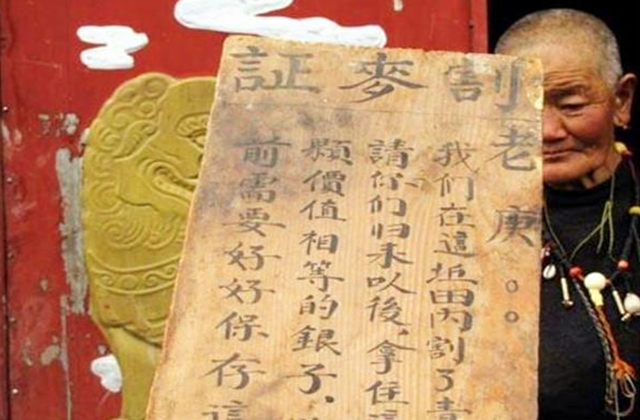 割麥証
老庚。。
我们在這坵田內割了青
請你们归来以後,拿住這
顆價值相等的銀子,
前需要好好保存這